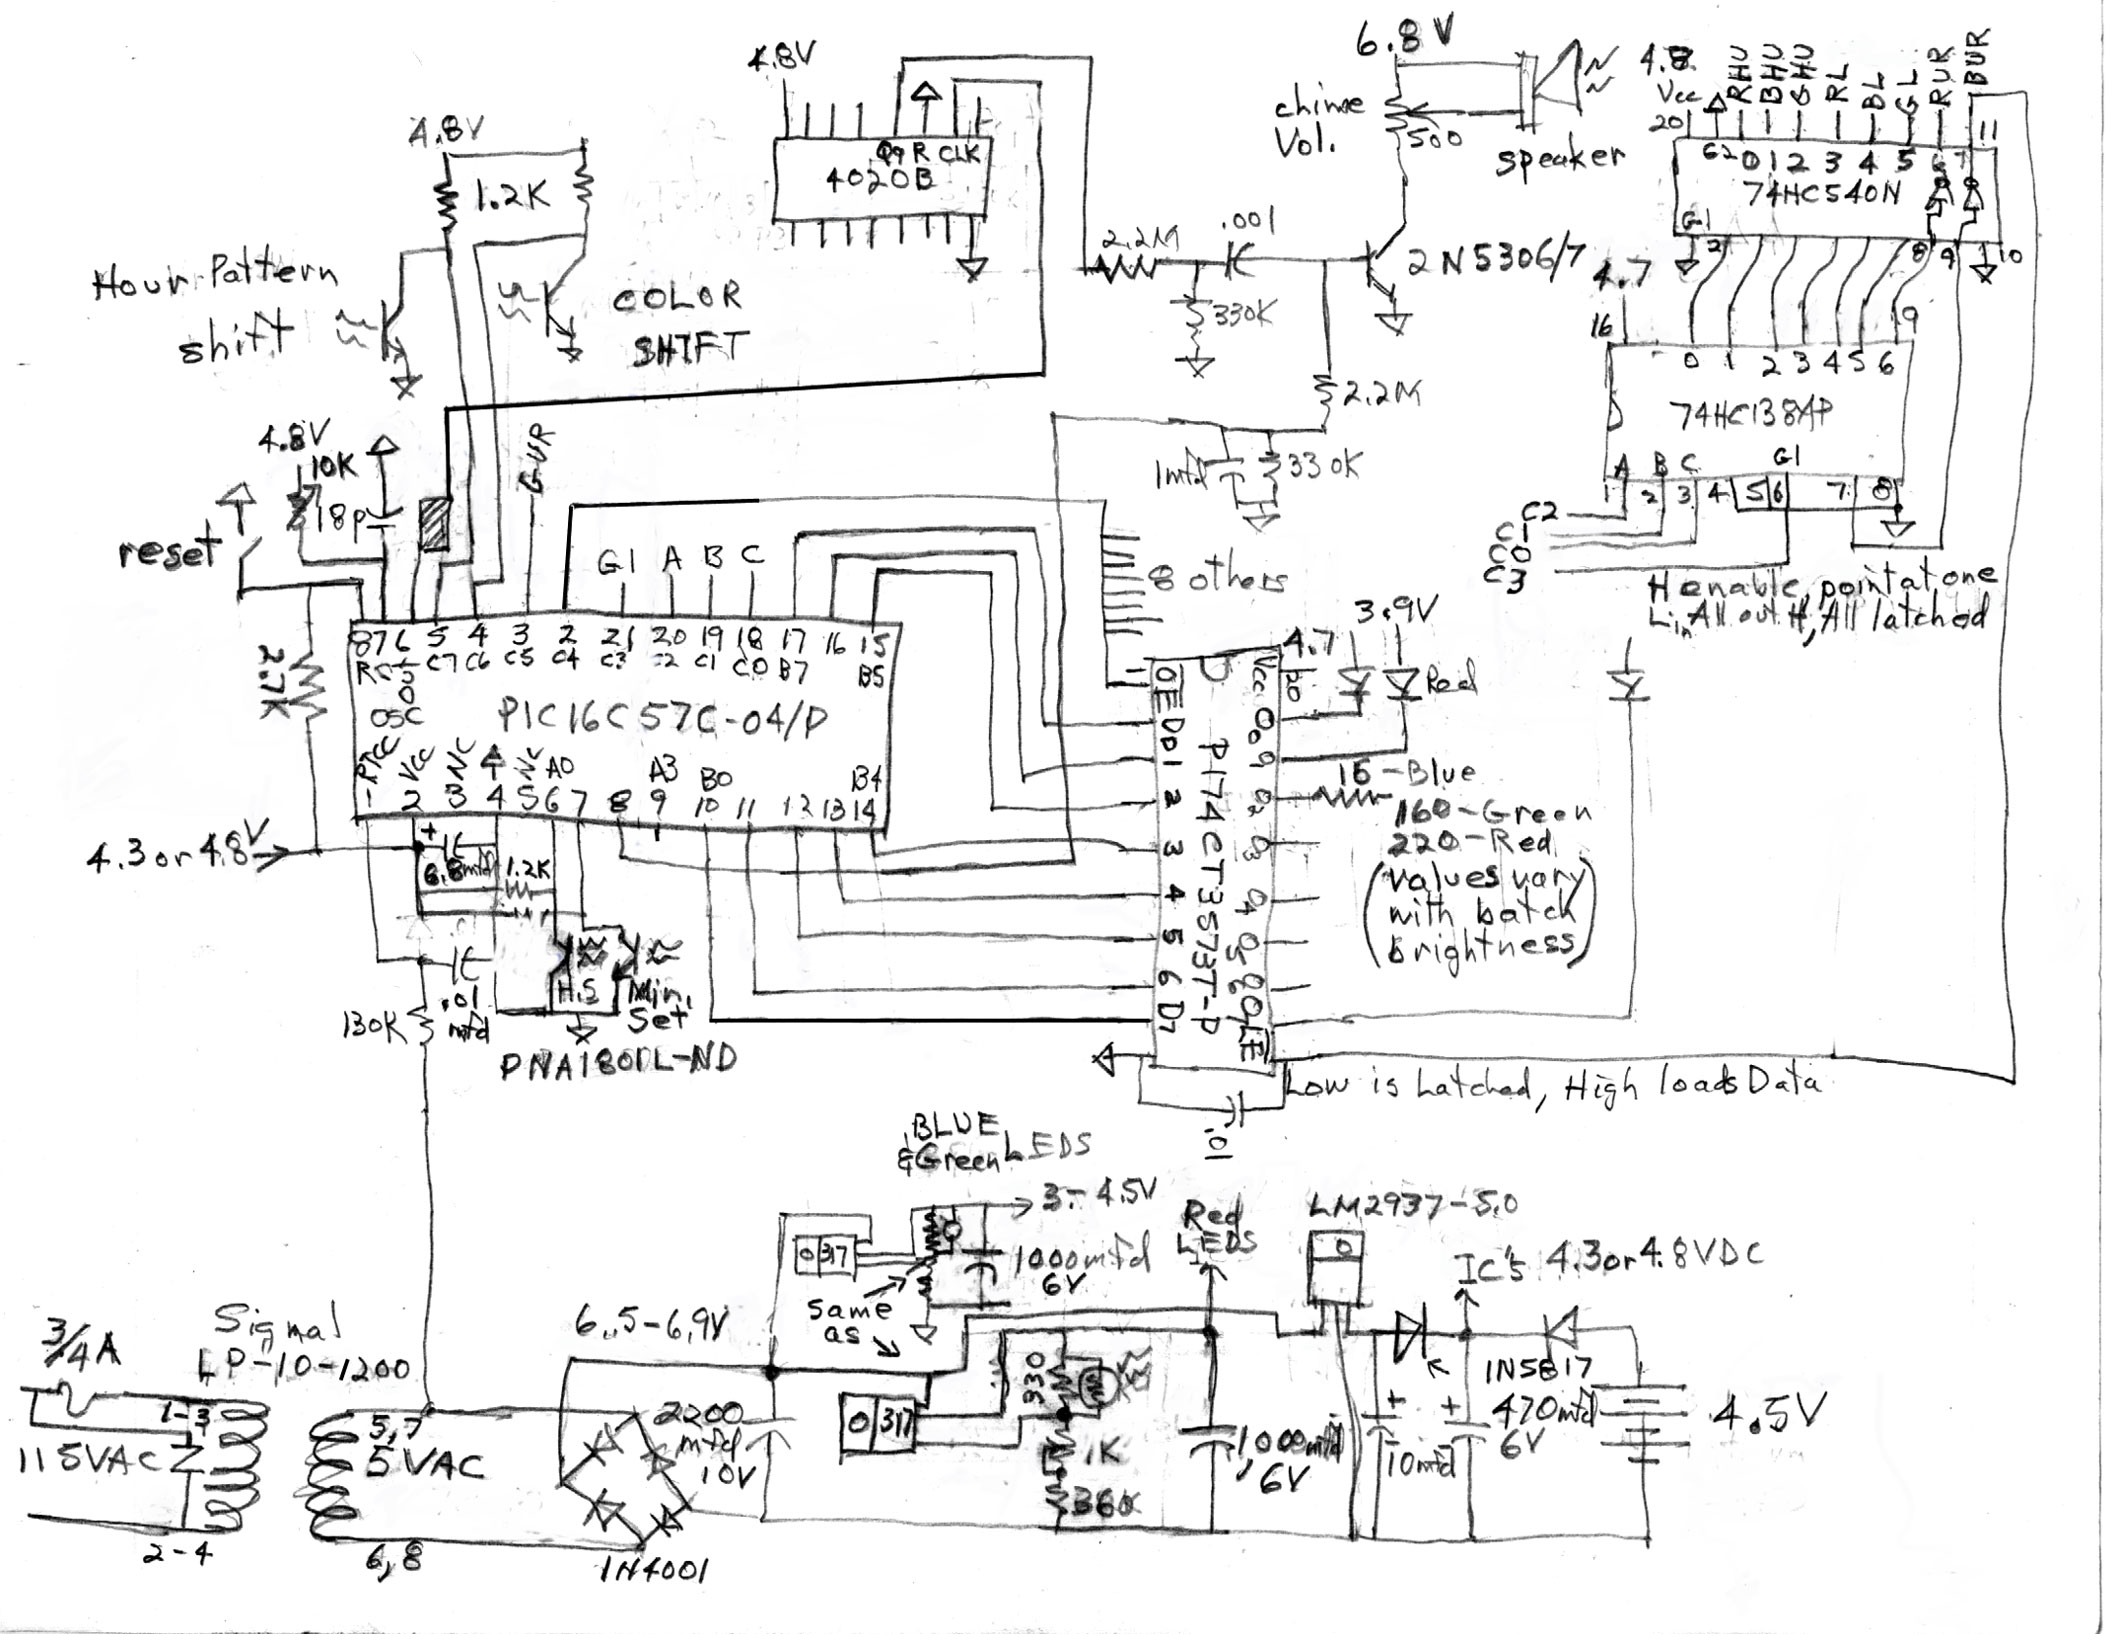 6.8 V
4.8V
chime
Vol.
500
speaker
4.8
Vcc
20
RHU
BHU
GHU
RL
BL
GL
RUR
BUR
11
4.8V
1.2K
Q9 R CLK
4020B
G2 0 1 2 3 4 5 6 7
74HC540N
G1
2
8
9
10
Hour Pattern
shift
COLOR
SHIFT
2.2M
.001
2N5306/7
330K
4.7
16
9
0 1 2 3 4 5 6
74HC138AP
2.2M
4.8V
10K
GUR
18p
reset
1mfd
330K
A B C G1
1 2 3 4 5 6 7 8
C2
C1
C0
C3
H enable, point at one
Lin All out H, All latched
8 others
G1 A B C
2.7K
8 7 6 5 4 3 2 21 20 19 18 17 16 15
C7 C6 C5 C4 C3 C2 C1 C0 B7 B5
OSC
OUT
PIC16C57C-04/P
RTCC
Vcc
NC
NC
A0
A3
B0
B4
1 2 3 4 5 6 7 8 9 10 11 12 13 14
3.9V
4.7
1
OE
Vcc
20
Red
D0
1
2
3
4
5
6
D7
PI74CT3573T-P
LE
15-Blue
160-Green
220-Red
(values vary
with batch
brightness)
4.3 or 4.8V
+
6.8mfd
1.2K
.01
mfd
130K
H.S
Min.
Set
PNA1801L-ND
Low is Latched, High loads Data
.01
BLUE
&Green LEDS
3-4.5V
317
1000mfd
6V
Same
as
Red
LEDS
LM2937-5.0
IC's 4.3or4.8VDC
3/4 A
Signal
LP-10-1200
6.5-6.9V
1-3
115VAC
2-4
5,7
5VAC
6,8
1N4001
2200
mfd
10V
317
330
1K
360
1,000mfd
6V
+
10mfd
1N5817
+
470mfd
6V
4.5V